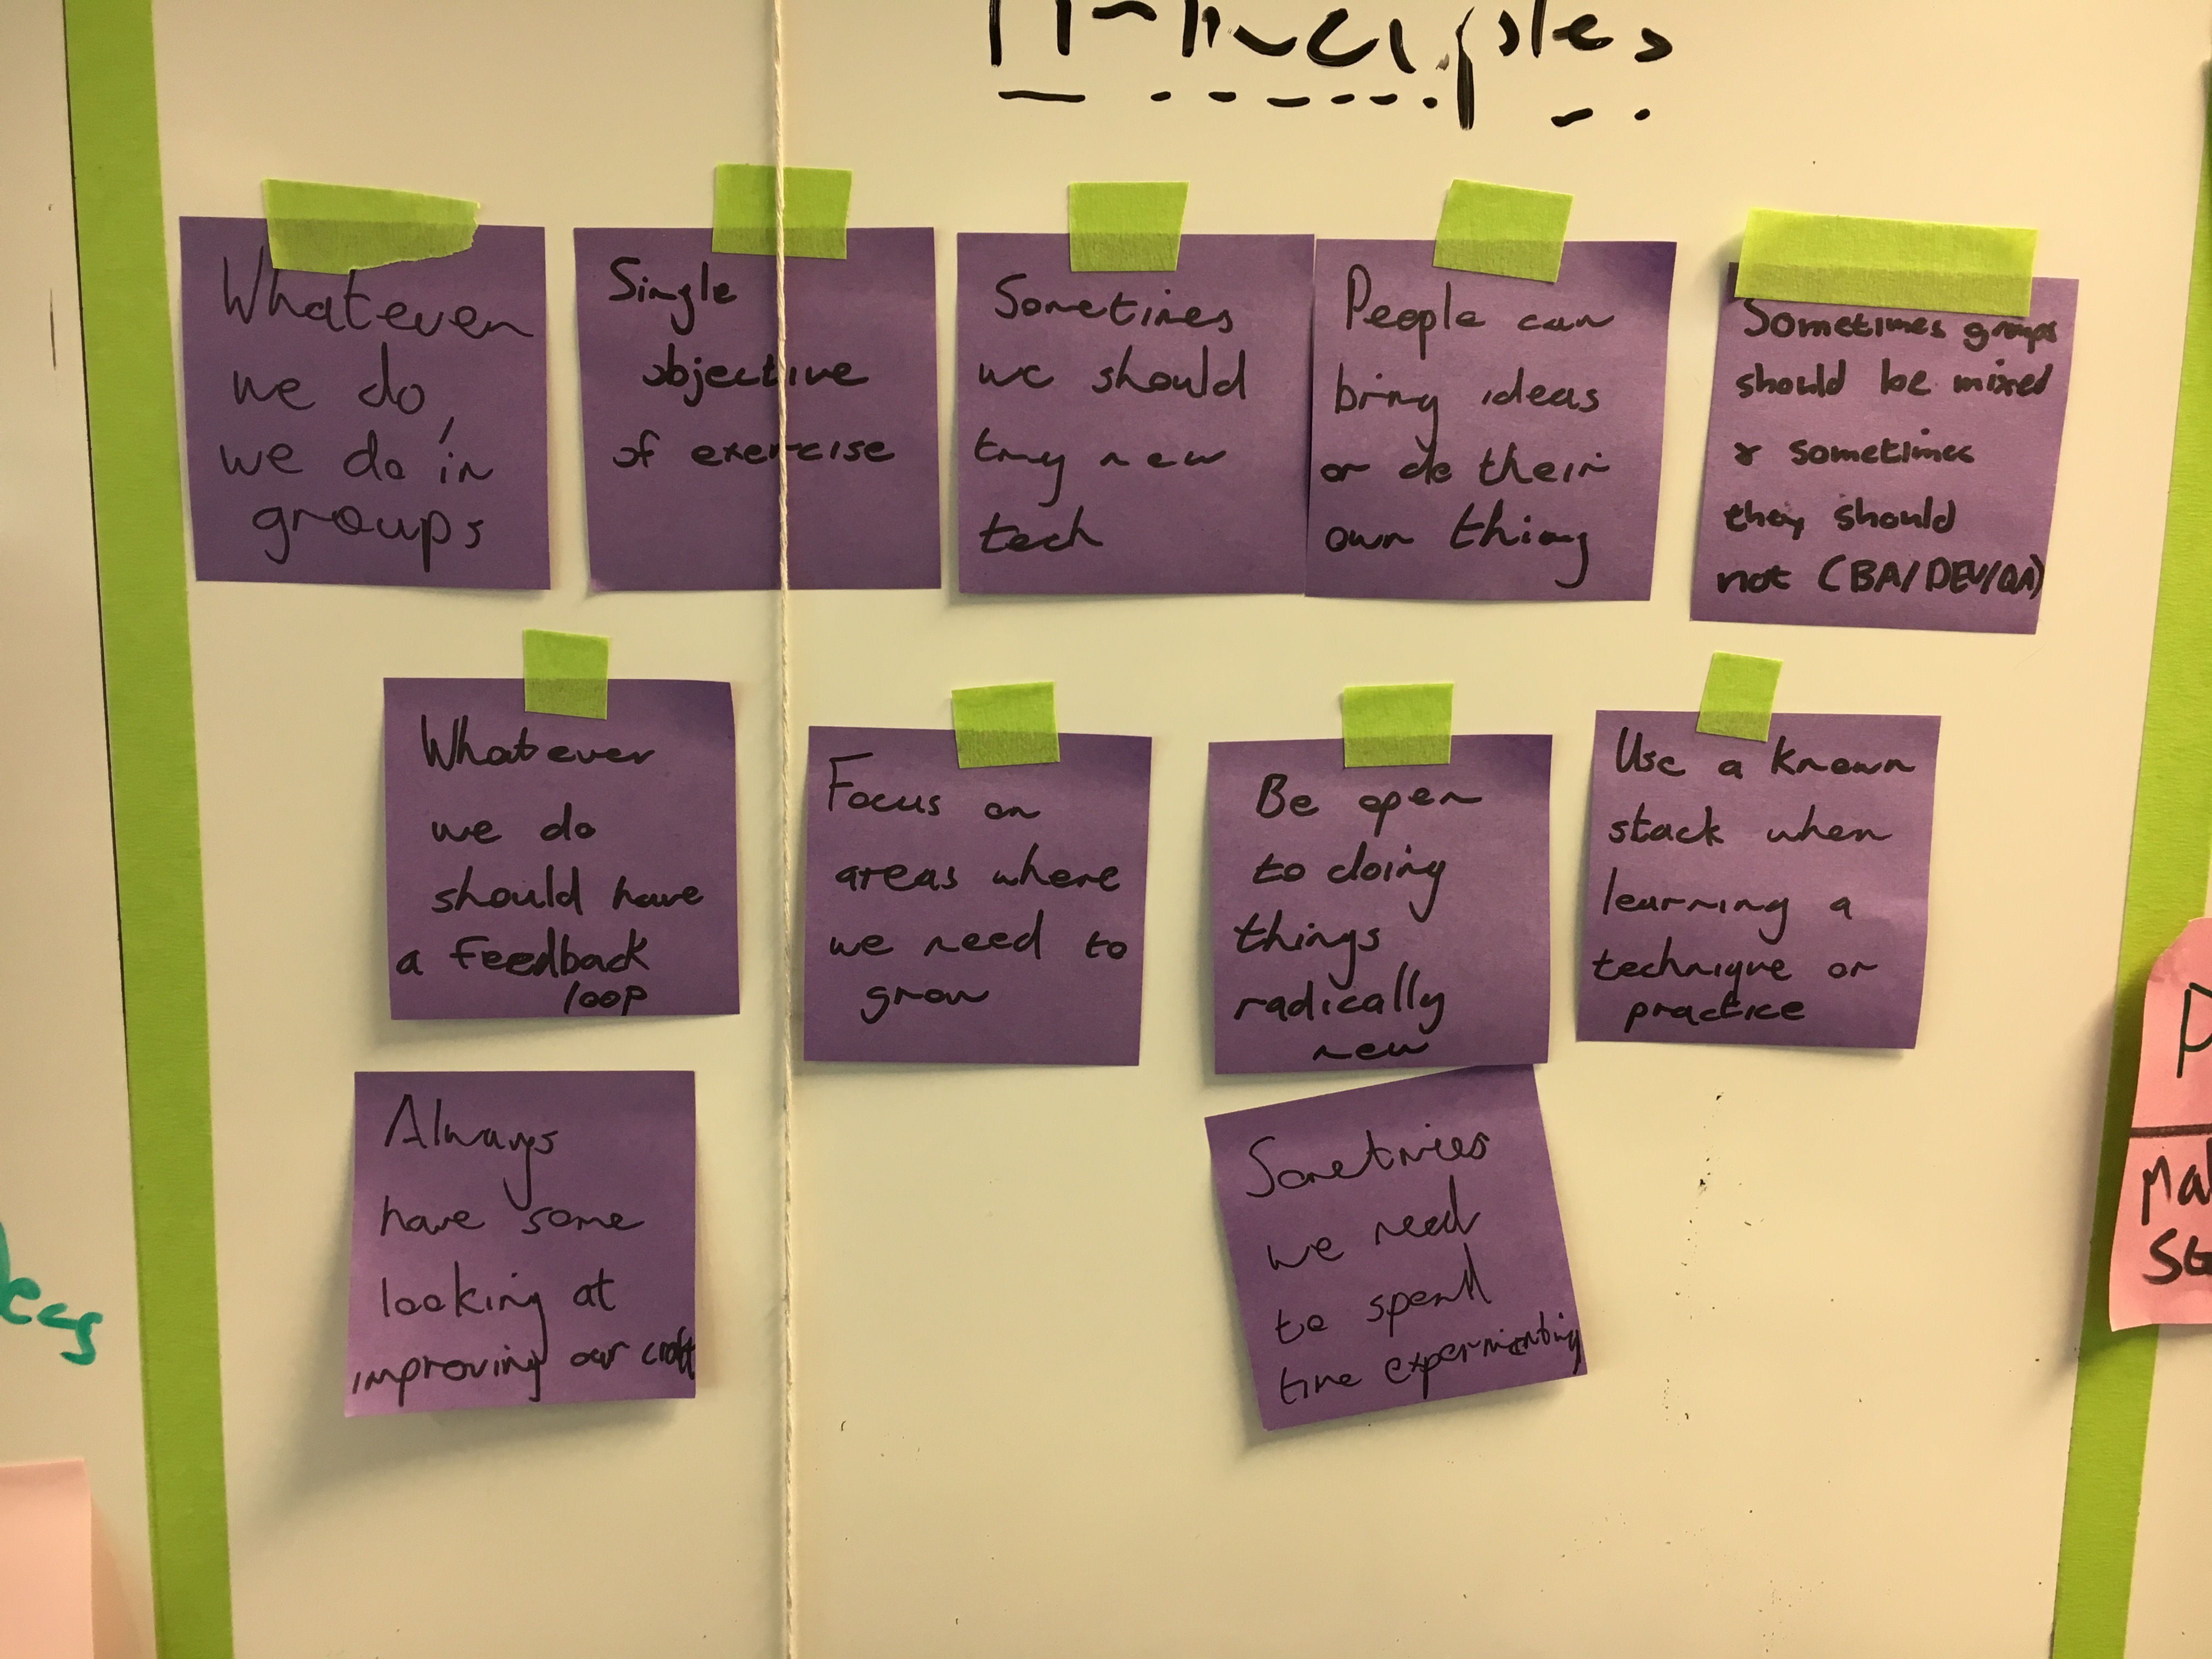 Principles
Whatever
we do,
we do in
groups
Single
objective
of exercise
Sometimes
we should
try new
tech
People can
bring ideas
or do their
own thing
Sometimes groups
should be mixed
& sometimes
they should
not (BA/DEV/QA)
Whatever
we do
should have
a Feedback
loop
Focus on
areas where
we need to
grow
Be open
to doing
things
radically
new
Use a known
stack when
learning a
technique or
practice
Always
have some
looking at
improving our craft
Sometimes
we need
to spend
time experimenting